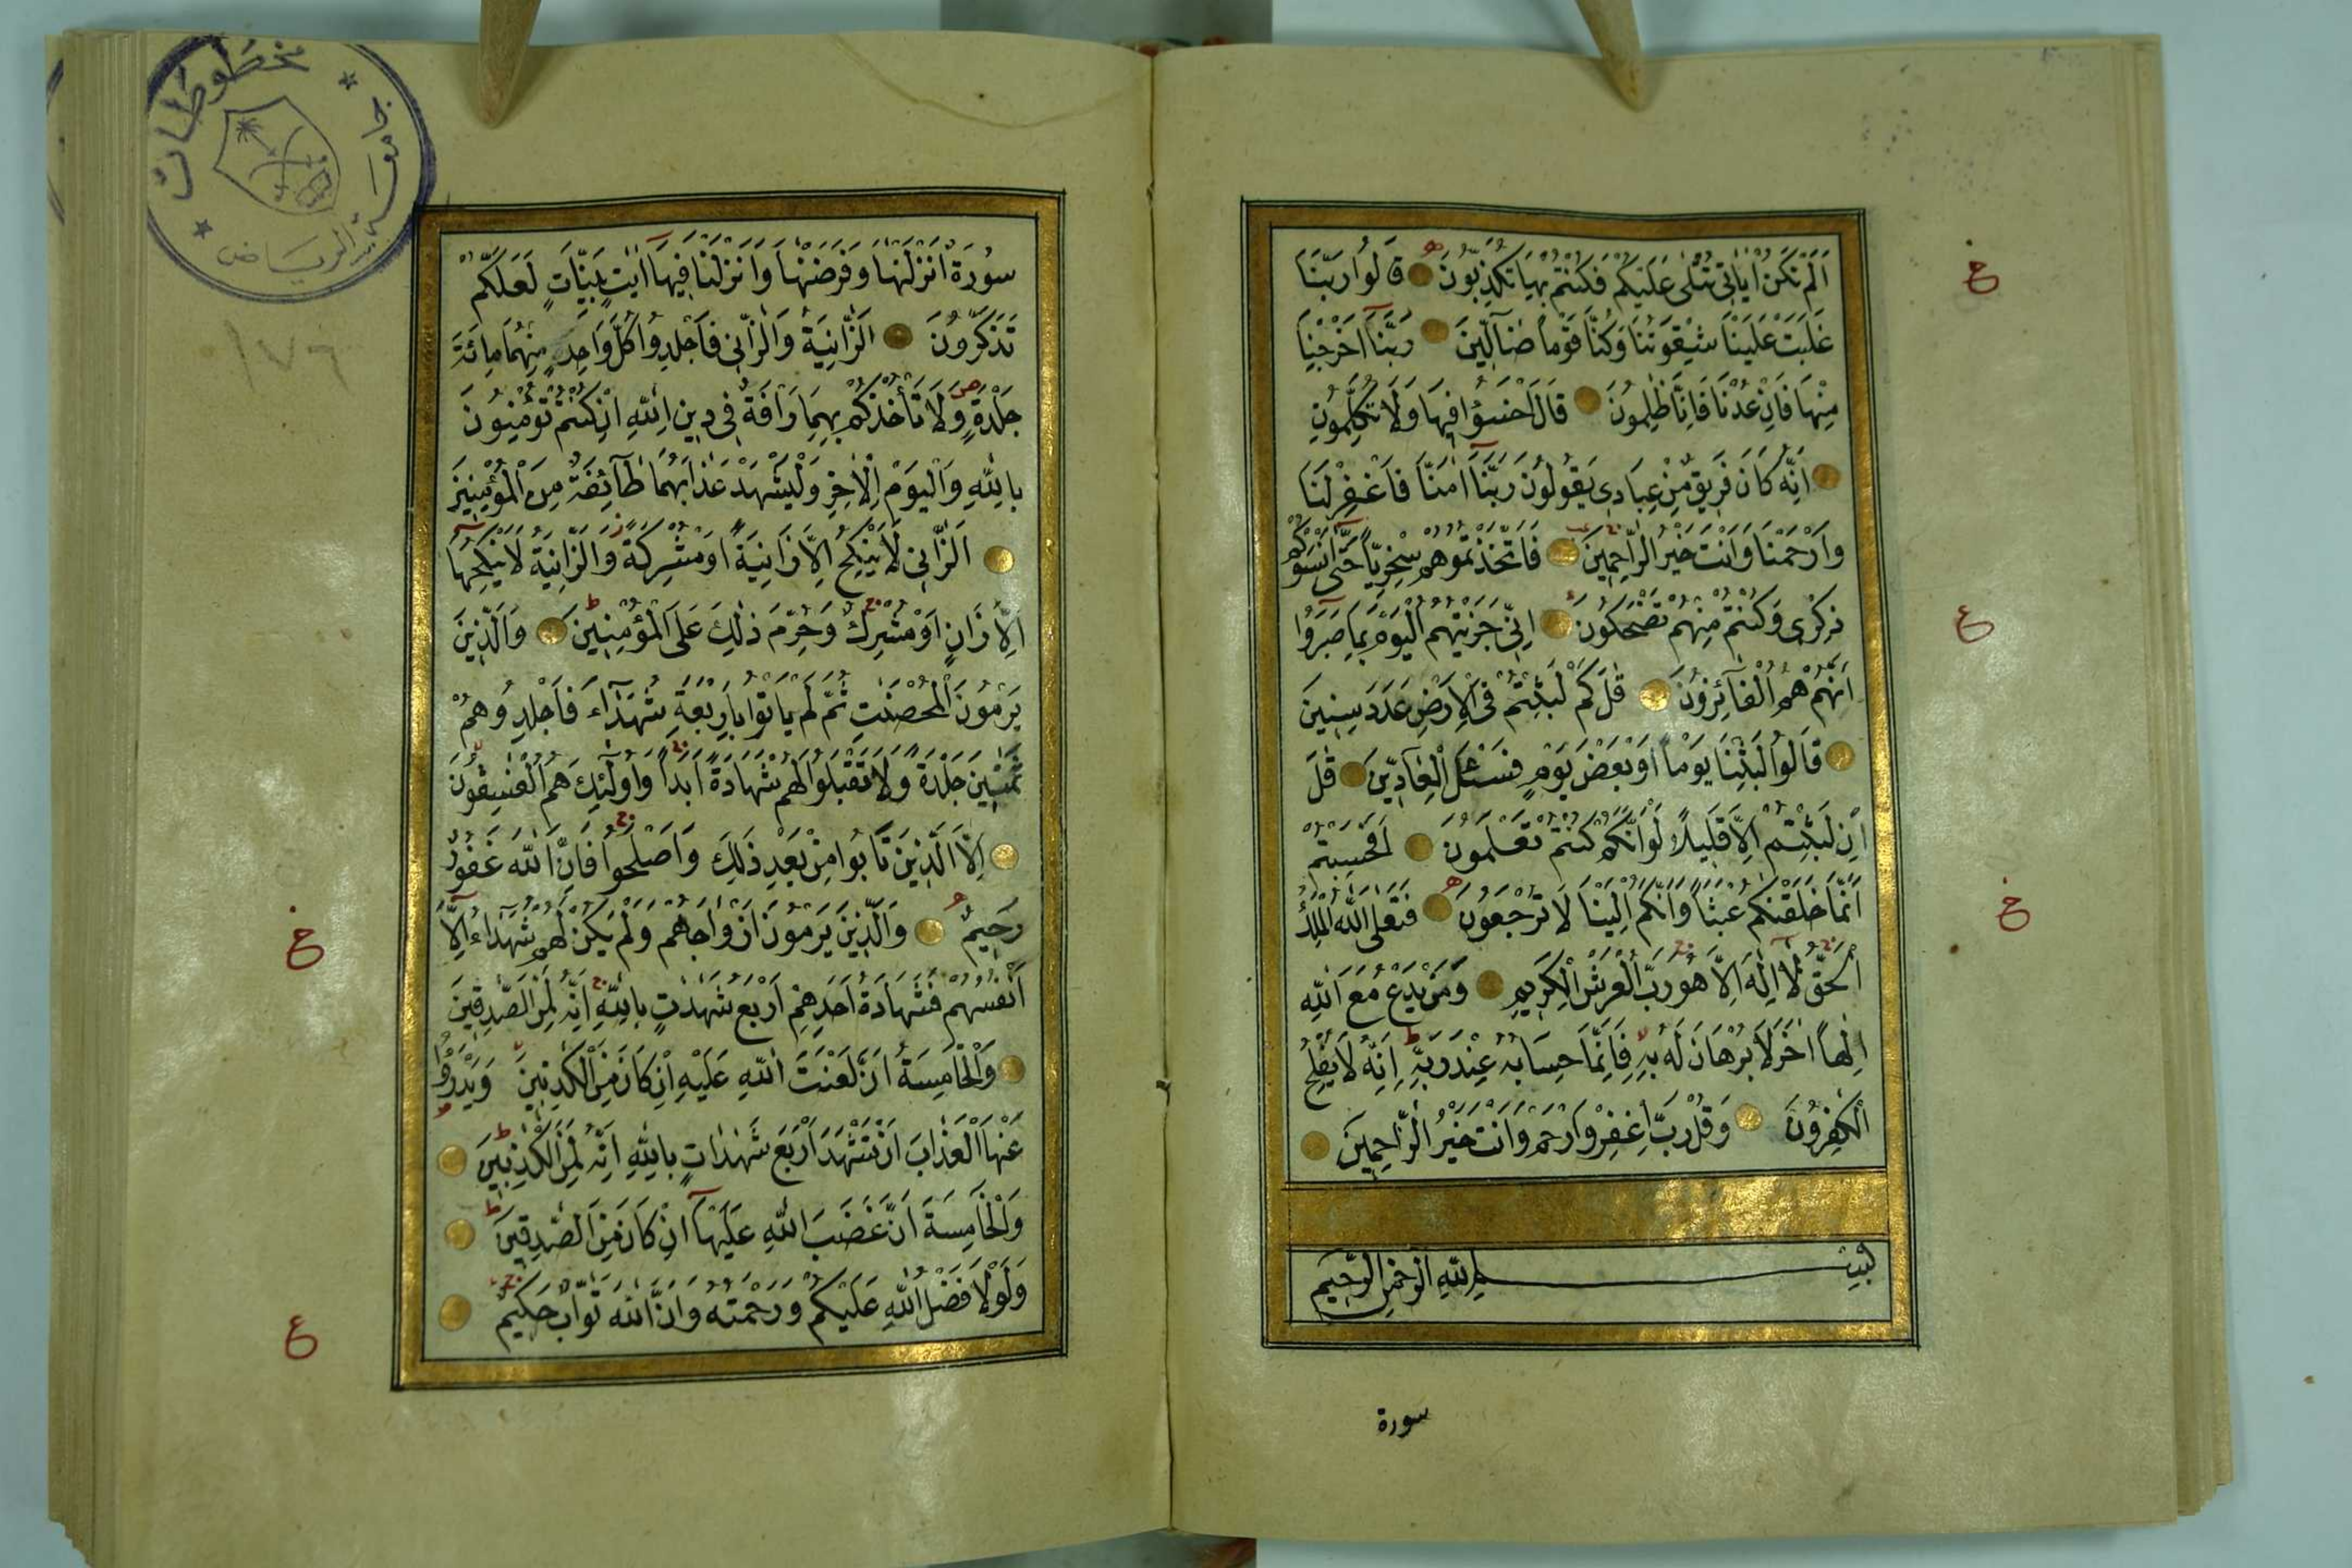 اَلَمْ تَكُنْ اٰيَاتٖى تُتْلٰى عَلَيْكُمْ فَكُنْتُمْ بِهَا تُكَذِّبُونَ قَالُوا رَبَّنَا
غَلَبَتْ عَلَيْنَا شِقْوَتُنَا وَكُنَّا قَوْمًا ضَٓالّٖينَ رَبَّنَٓا اَخْرِجْنَا
مِنْهَا فَاِنْ عُدْنَا فَاِنَّا ظٰلِمُونَ قَالَ اخْسَؤُا فٖيهَا وَلَا تُكَلِّمُونِ
اِنَّهُ كَانَ فَرٖيقٌ مِنْ عِبَادٖى يَقُولُونَ رَبَّنَٓا اٰمَنَّا فَاغْفِرْ لَنَا
وَارْحَمْنَا وَاَنْتَ خَيْرُ الرَّاحِمٖينَ فَاتَّخَذْتُمُوهُمْ سِخْرِيًّا حَتّٰٓى اَنْسَوْكُمْ
ذِكْرٖى وَكُنْتُمْ مِنْهُمْ تَضْحَكُونَ اِنّٖى جَزَيْتُهُمُ الْيَوْمَ بِمَا صَبَرُٓوا
اَنَّهُمْ هُمُ الْفَٓائِزُونَ قٰلَ كَمْ لَبِثْتُمْ فِى الْاَرْضِ عَدَدَ سِنٖينَ
قَالُوا لَبِثْنَا يَوْمًا اَوْ بَعْضَ يَوْمٍ فَسْـَٔلِ الْعَٓادّٖينَ قٰلَ
اِنْ لَبِثْتُمْ اِلَّا قَلٖيلًا لَوْ اَنَّكُمْ كُنْتُمْ تَعْلَمُونَ اَفَحَسِبْتُمْ
اَنَّمَا خَلَقْنٰكُمْ عَبَثًا وَاَنَّكُمْ اِلَيْنَا لَا تُرْجَعُونَ فَتَعٰلَى اللّٰهُ الْمَلِكُ
الْحَقُّ لَٓا اِلٰهَ اِلَّا هُوَ رَبُّ الْعَرْشِ الْكَرٖيمِ وَمَنْ يَدْعُ مَعَ اللّٰهِ
اِلٰهًا اٰخَرَ لَا بُرْهَانَ لَهُ بِهٖ فَاِنَّمَا حِسَابُهُ عِنْدَ رَبِّهٖ اِنَّهُ لَا يُفْلِحُ
الْكٰفِرُونَ وَقُلْ رَبِّ اغْفِرْ وَارْحَمْ وَاَنْتَ خَيْرُ الرَّاحِمٖينَ
بِسْمِ اللّٰهِ الرَّحْمٰنِ الرَّحٖيمِ
سورة
سُورَةٌ اَنْزَلْنٰهَا وَفَرَضْنٰهَا وَاَنْزَلْنَا فٖيهَٓا اٰيٰتٍ بَيِّنَاتٍ لَعَلَّكُمْ
تَذَكَّرُونَ اَلزَّانِيَةُ وَالزَّانٖى فَاجْلِدُوا كُلَّ وَاحِدٍ مِنْهُمَا مِائَةَ
جَلْدَةٍ وَلَا تَأْخُذْكُمْ بِهِمَا رَاْفَةٌ فٖى دٖينِ اللّٰهِ اِنْ كُنْتُمْ تُؤْمِنُونَ
بِاللّٰهِ وَالْيَوْمِ الْاٰخِرِ وَلْيَشْهَدْ عَذَابَهُمَا طَٓائِفَةٌ مِنَ الْمُؤْمِنٖينَ
اَلزَّانٖى لَا يَنْكِحُ اِلَّا زَانِيَةً اَوْ مُشْرِكَةً وَالزَّانِيَةُ لَا يَنْكِحُهَٓا
اِلَّا زَانٍ اَوْ مُشْرِكٌ وَحُرِّمَ ذٰلِكَ عَلَى الْمُؤْمِنٖينَ وَالَّذٖينَ
يَرْمُونَ الْمُحْصَنٰتِ ثُمَّ لَمْ يَاْتُوا بِاَرْبَعَةِ شُهَدَٓاءَ فَاجْلِدُوهُمْ
ثَمٰنٖينَ جَلْدَةً وَلَا تَقْبَلُوا لَهُمْ شَهَادَةً اَبَدًا وَاُولٰٓئِكَ هُمُ الْفٰسِقُونَ
اِلَّا الَّذٖينَ تَابُوا مِنْ بَعْدِ ذٰلِكَ وَاَصْلَحُوا فَاِنَّ اللّٰهَ غَفُورٌ
رَحٖيمٌ وَالَّذٖينَ يَرْمُونَ اَزْوَاجَهُمْ وَلَمْ يَكُنْ لَهُمْ شُهَدَٓاءُ اِلَّٓا
اَنْفُسُهُمْ فَشَهَادَةُ اَحَدِهِمْ اَرْبَعُ شَهٰدٰتٍ بِاللّٰهِ اِنَّهُ لَمِنَ الصّٰدِقٖينَ
وَالْخَامِسَةُ اَنَّ لَعْنَتَ اللّٰهِ عَلَيْهِ اِنْ كَانَ مِنَ الْكٰذِبٖينَ وَيَدْرَؤُا
عَنْهَا الْعَذَابَ اَنْ تَشْهَدَ اَرْبَعَ شَهٰدٰتٍ بِاللّٰهِ اِنَّهُ لَمِنَ الْكٰذِبٖينَ
وَالْخَامِسَةَ اَنَّ غَضَبَ اللّٰهِ عَلَيْهَٓا اِنْ كَانَ مِنَ الصّٰدِقٖينَ
وَلَوْلَا فَضْلُ اللّٰهِ عَلَيْكُمْ وَرَحْمَتُهُ وَاَنَّ اللّٰهَ تَوَّابٌ حَكٖيمٌ
جامعة الرياض
مخطوطات
١٧٦
ع
ع